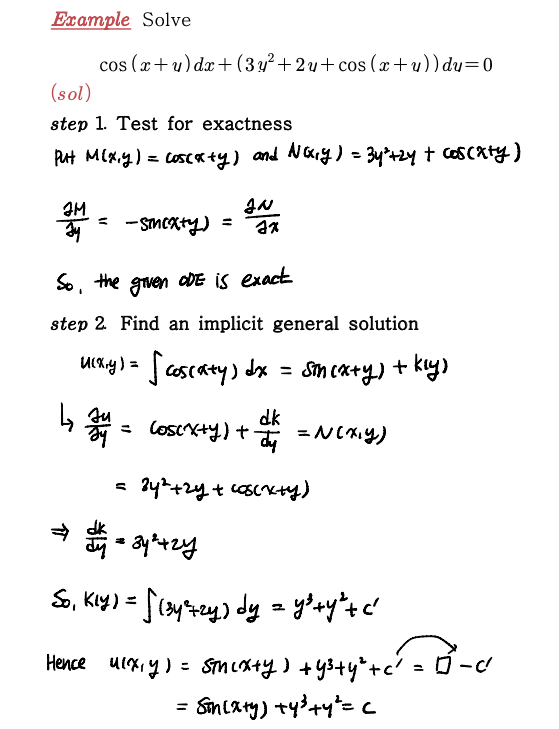 Example Solve
cos(x+y)dx+(3y²+2y+cos(x+y))dy=0
(sol)
step 1. Test for exactness
Put M(x,y) = cos(x+y) and N(x,y) = 3y²+2y + cos(x+y)
∂M/∂y = -sin(x+y) = ∂N/∂x
So, the given ODE is exact
step 2. Find an implicit general solution
u(x,y) = ∫cos(x+y) dx = sin(x+y) + k(y)
↳ ∂u/∂y = cos(x+y) + dk/dy = N(x,y)
= 3y²+2y + cos(x+y)
⇒ dk/dy = 3y²+2y
So, k(y) = ∫(3y²+2y) dy = y³+y²+c'
Hence u(x,y) = sin(x+y) + y³+y²+c' = □ -c'
= sin(x+y) +y³+y² = c